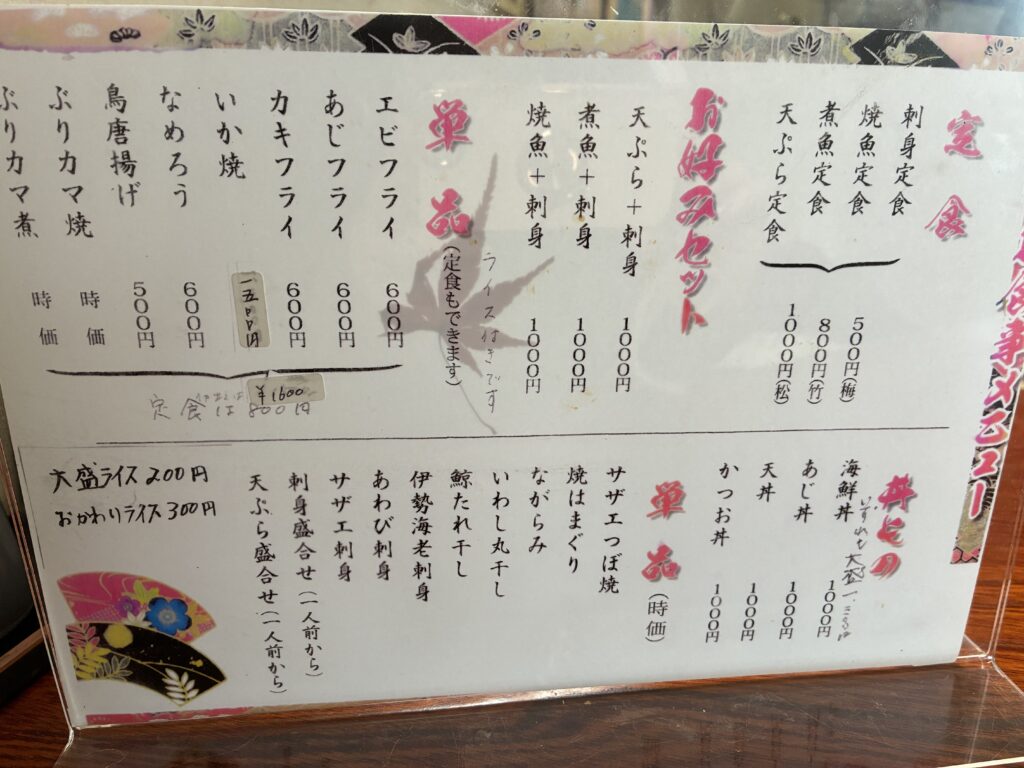 お食事メニュー
定食
刺身定食
焼魚定食
煮魚定食
天ぷら定食
500円(梅)
800円(竹)
1000円(松)
お好みセット
天ぷら+刺身 1000円
煮魚+刺身 1000円
焼魚+刺身 1000円
ライス付きです
単品(定食もできます)
エビフライ 600円
あじフライ 600円
カキフライ 600円
いか焼 一五〇〇円
なめろう 600円
鳥唐揚げ 500円
ぶりカマ焼 時価
ぶりカマ煮 時価
¥1600
定食は800円
丼もの
海鮮丼 1000円
いずれも大盛
あじ丼 1000円
天丼 1000円
かつお丼 1000円
単品(時価)
サザエつぼ焼
焼はまぐり
ながらみ
いわし丸干し
鯨たれ干し
伊勢海老刺身
あわび刺身
サザエ刺身
刺身盛合せ(一人前から)
天ぷら盛合せ(一人前から)
大盛ライス200円
おかわりライス300円